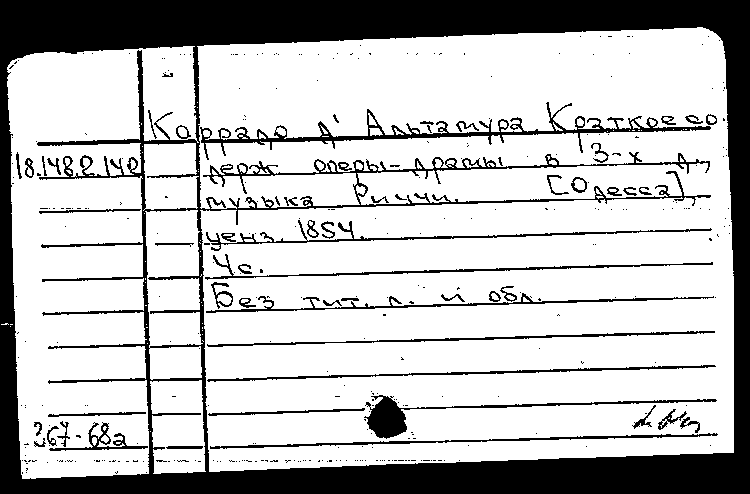 Каррадо д' Альтамура Краткое со
18.148.2.140
держ оперы-драмы в 3-х д.,
музыка Риччи. [Одесса],
ценз. 1854.
4с.
Без тит. л. и обл.
367-68а